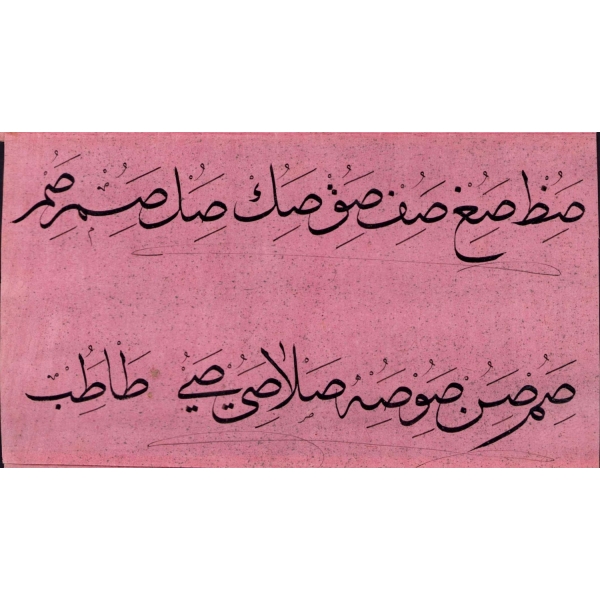 صط صع صف صق صك صل صم صم
صم صن صو صه صلا صى صے طا طب